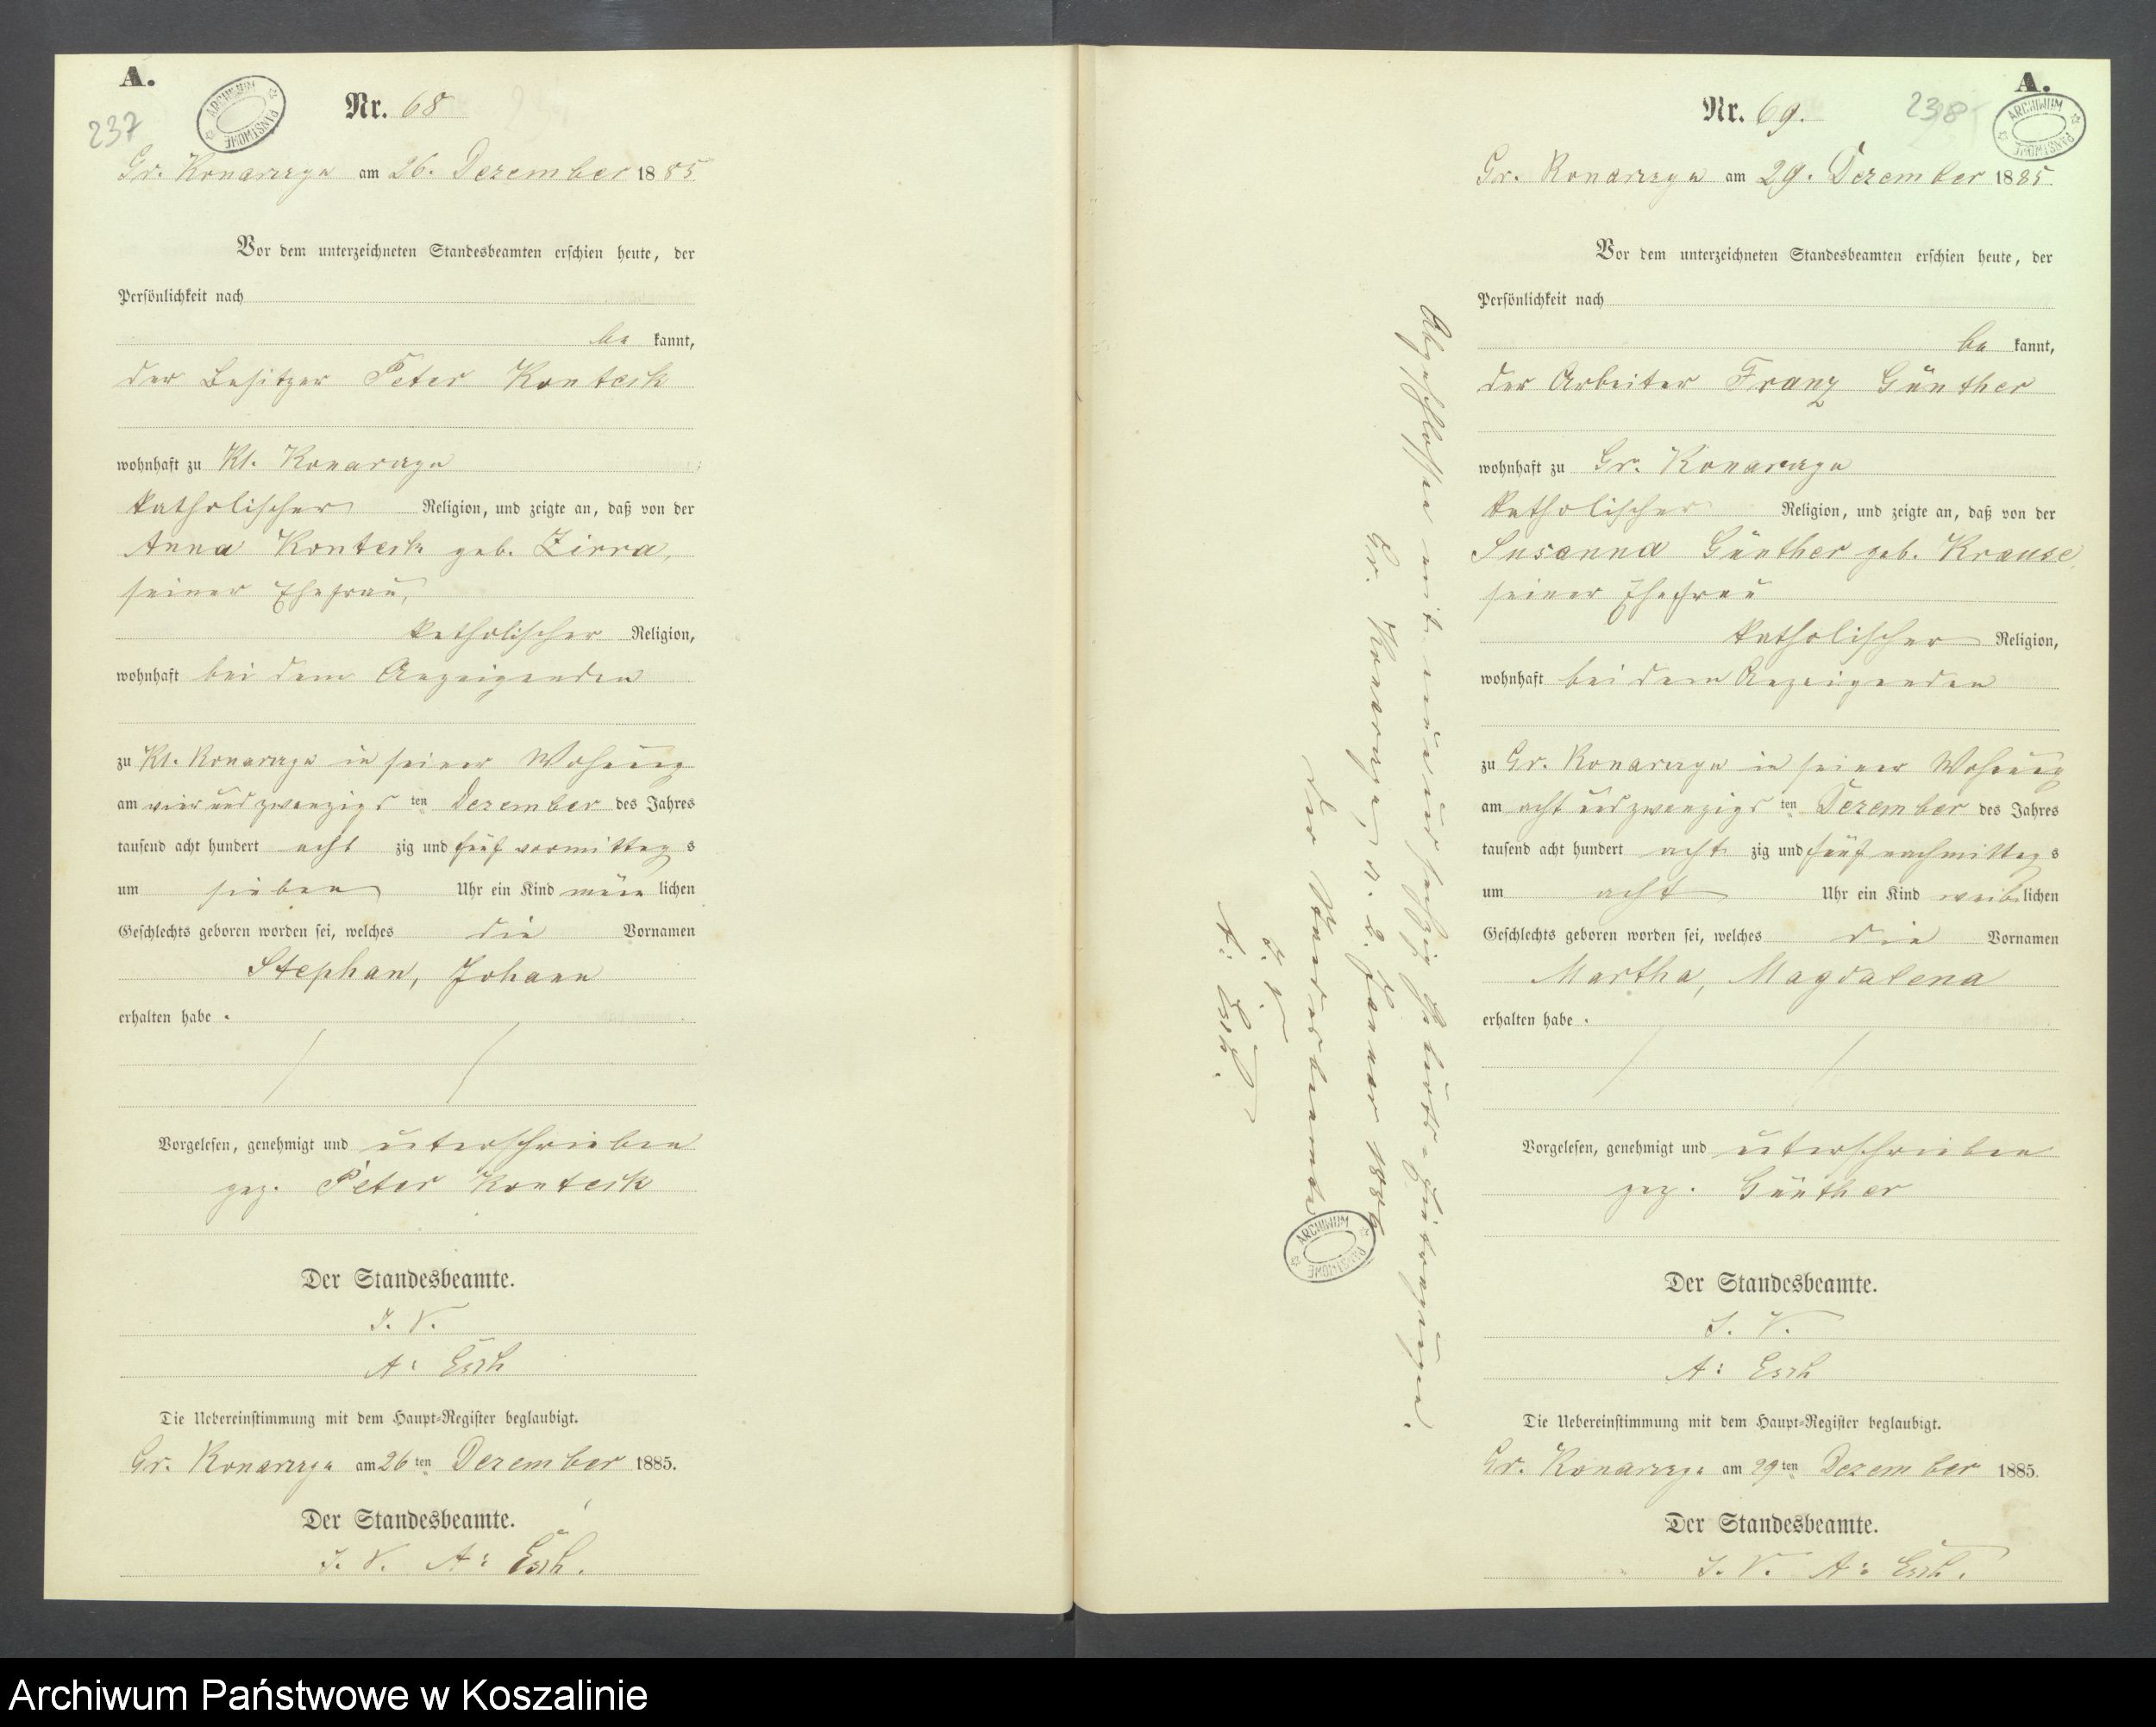 A.
237
ARCHIWUM PAŃSTWOWE
Nr. 68
Gr. Konarczyn am 26. Dezember 1885
Vor dem unterzeichneten Standesbeamten erschien heute, der
Persönlichkeit nach
be kannt,
der Besitzer Peter Konteck
wohnhaft zu Kl. Konarczyn
katholischer Religion, und zeigte an, daß von der
Anna Konteck geb. Zirra,
seiner Ehefrau,
katholischer Religion,
wohnhaft bei dem Anzeigenden
zu Kl. Konarczyn in seiner Wohnung
am vier und zwanzigs ten Dezember des Jahres
tausend acht hundert acht zig und fünf vormittag s
um sieben Uhr ein Kind männ lichen
Geschlechts geboren worden sei, welches die Vornamen
Stephan, Johann
erhalten habe.
Vorgelesen, genehmigt und unterschrieben
gez. Peter Konteck
Der Standesbeamte.
I. V.
A: Esch
Die Uebereinstimmung mit dem Haupt-Register beglaubigt.
Gr. Konarczyn am 26 ten Dezember 1885.
Der Standesbeamte.
I. V. A: Esch.
Abgeschlossen mit neunundsechzig Geburts-Eintragungen.
Gr. Konarczyn, d. 2. Januar 1886
Der Standesbeamte
I. V.
A: Esch.
ARCHIWUM PAŃSTWOWE
A.
238
ARCHIWUM PAŃSTWOWE
Nr. 69.
Gr. Konarczyn am 29. Dezember 1885.
Vor dem unterzeichneten Standesbeamten erschien heute, der
Persönlichkeit nach
be kannt,
der Arbeiter Franz Günther
wohnhaft zu Gr. Konarczyn
katholischer Religion, und zeigte an, daß von der
Susanna Günther geb. Krause,
seiner Ehefrau
katholischer Religion,
wohnhaft bei dem Anzeigenden
zu Gr. Konarczyn in seiner Wohnung
am acht und zwanzigs ten Dezember des Jahres
tausend acht hundert acht zig und fünf nachmittag s
um acht Uhr ein Kind weib lichen
Geschlechts geboren worden sei, welches die Vornamen
Martha, Magdalena
erhalten habe.
Vorgelesen, genehmigt und unterschrieben
gez. Günther
Der Standesbeamte.
I. V.
A: Esch
Die Uebereinstimmung mit dem Haupt-Register beglaubigt.
Gr. Konarczyn am 29 ten Dezember 1885.
Der Standesbeamte.
I. V. A: Esch.
Archiwum Państwowe w Koszalinie